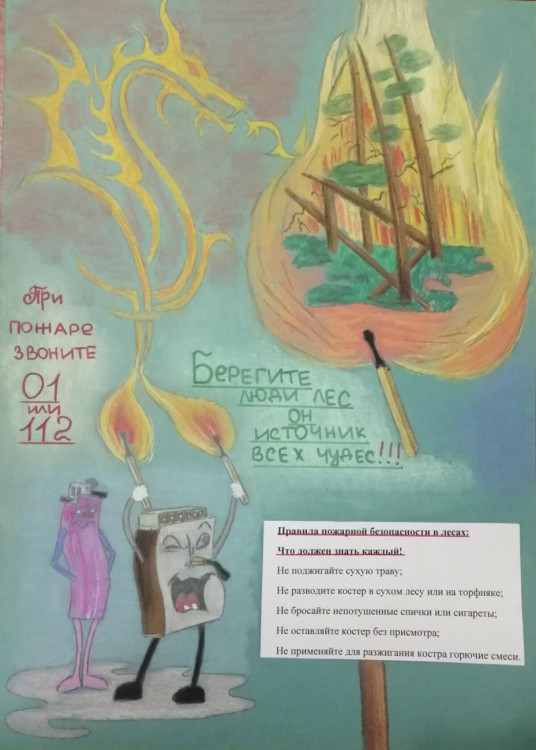 При
пожаре
звоните
01
или
112
Берегите
люди лес
он
источник
всех чудес!!!
Правила пожарной безопасности в лесах:
Что должен знать каждый!
Не поджигайте сухую траву;
Не разводите костер в сухом лесу или на торфянике;
Не бросайте непотушенные спички или сигареты;
Не оставляйте костер без присмотра;
Не применяйте для разжигания костра горючие смеси.